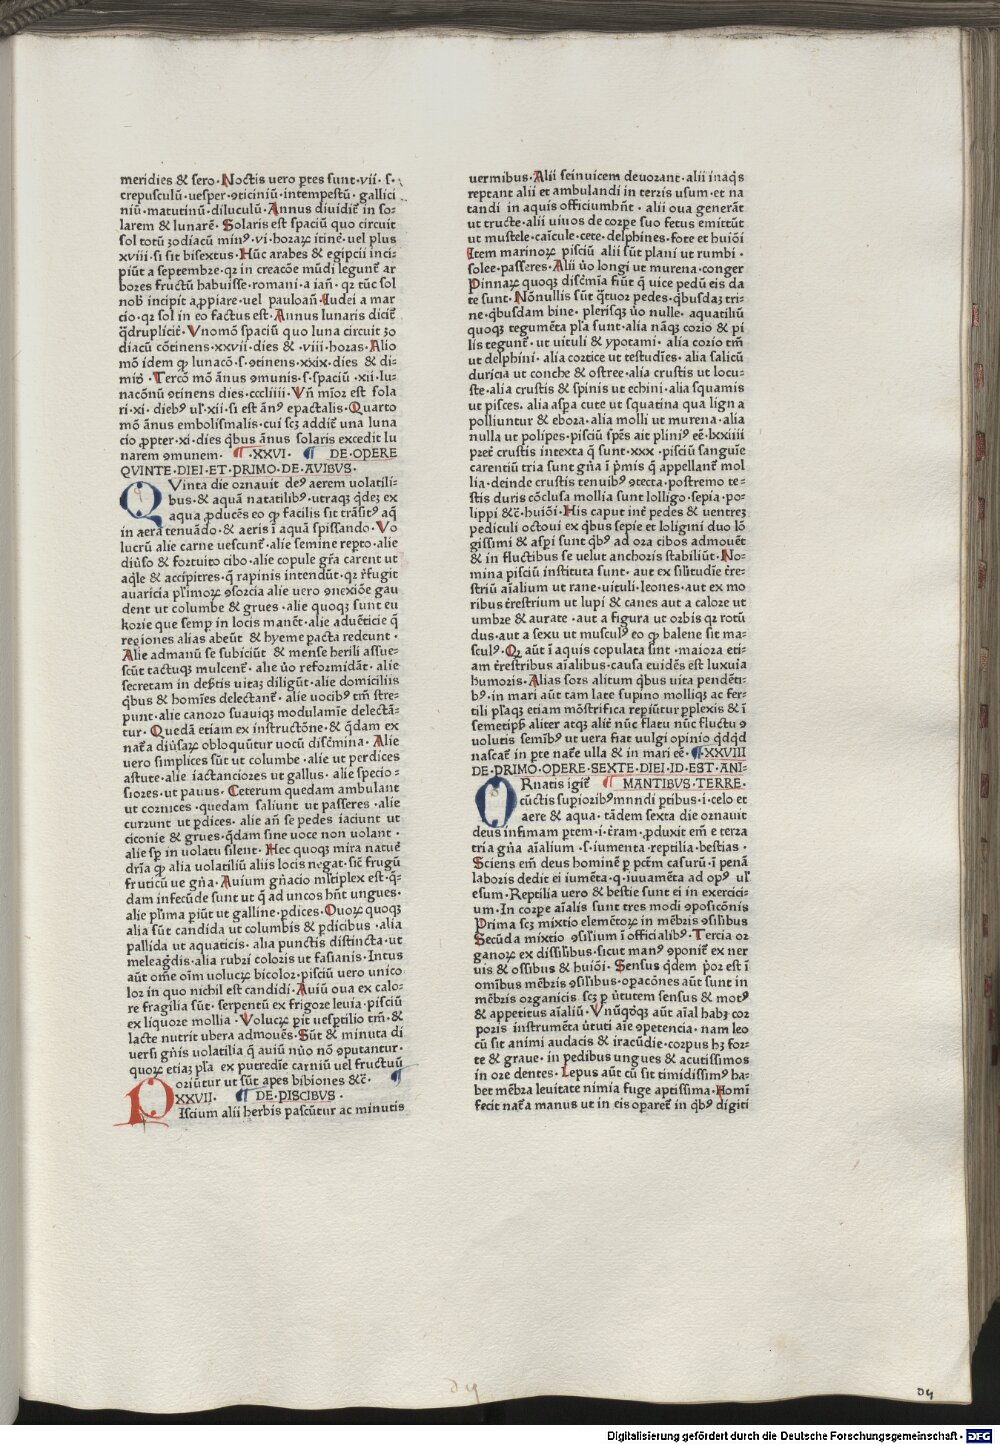 meridies & sero· Noctis uero ꝑtes sunt·vii· s·
crepusculū·uesper·ꝯticiniū·intempestū· gallici
niū·matutinū·diluculū· Annus diuidit̄ in so-
larem & lunarē· Solaris est spaciū quo circuit
sol totū zodiacū minꝰ·vi·horaꝝ itinē·uel plus
xviii·si sit bisextus· Hūc arabes & egipcii inci-
piūt a septembre·qꝛ in creacōe mūdi legunt̄ ar
bores fructū habuisse·romani·a iañ· qꝛ tūc sol
nob̄ incipit aꝓpiare·uel pauloañ· Iudei a mar
cio·qꝛ sol in eo factus est· Annus lunaris dicit̄
q̄druplicit̄· Vnomō spaciū quo luna circuit zo
diacū cōtinens·xxvii·dies & viii·horas· Alio
mō idem ꝙ lunacō·s·ꝯtinens·xxix·dies & di-
miꝰ· Tercō mō ānus ꝯmunis·s·spaciū ·xii·lu-
nacōnū ꝯtinens dies·cccliiii· Vñ mīor est sola
ri·xi· diebꝰ ul̕·xii·si est ānꝰ epactalis· Quarto
mō ānus embolismalis·cui scꝫ addit̄ una luna
cio ꝓpter·xi·dies q̄bus ānus solaris excedit lu
narem ꝯmunem· ¶ ·XXVI· ¶ DE·OPERE
QVINTE·DIEI·ET·PRIMO·DE·AVIBVS·
QVinta die oznauit deꝰ aerem uolatili-
bus·& aquā natatilibꝰ·utraqꝫ q̄deꝫ ex
aqua ꝓducēs eo ꝙ facilis sit trāsitꝰ aq̄
in aera tenuādo·& aeris ī aquā spissando· Vo
lucrū alie carne uescunt̄·alie semine repto·alie
diūso & fortuito cibo·alie copule gr̄a carent ut
aq̄le & accipitres·q̄ rapinis intendūt·qꝛ r̄fugit
auaricia pl̕imoꝝ ꝯsorcia alie uero ꝯnexiōe gau
dent ut columbe & grues· alie quoqꝫ sunt eu
kozie que semꝑ in locis manēt·alie aduēticie q̄
regiones alias abeūt & hyeme pacta redeunt·
Alie admanū se subiciūt & mense herili assue-
scūt tactuqꝫ mulcent̄· alie ūo reformidāt· alie
secretam in deẜtis uitaꝫ diligūt·alie domiciliis
q̄bus & homīes delectant̄· alie uocibꝰ tm̄ stre-
punt·alie canoro suauiqꝫ modulamīe delectā-
tur· Quedā etiam ex instructōne·& q̄dam ex
nat̄a diūsaꝝ obloquūtur uocū disc̄mina· Alie
uero simplices sūt ut columbe·alie ut perdices
astute·alie iactanciozes ut gallus· alie specio-
siores·ut pauus· Ceterum quedam ambulant
ut cornices·quedam saliunt ut passeres·alie
currunt ut ꝑdices·alie añ se pedes iaciunt ut
ciconie & grues·q̄dam sine uoce non uolant·
alie sꝑ in uolatu silent· Hec quoqꝫ mira natur̄
dr̄ia ꝙ alia uolatiliū aliis locis negat·sic̄ frugū
fruticū ue gn̄a· Auium gn̄acio mltiplex est·q̄-
dam infecūde sunt ut q̄ ad uncos hn̄t ungues·
alie pl̕ima ꝑiūt ut galline·ꝑdices· Ouoꝝ quoqꝫ
alia sūt candida ut columbis & ꝑdicibus·alia
pallida ut aquaticis· alia punctis distincta·ut
meleag̕dis·alia rubri coloris ut fasianis· Intus
aūt om̄e oīm uolucꝝ bicolor·pisciū uero unico
lor in quo nichil est candidi· Auiū oua ex calo-
re fragilia sūt· serpentū ex frigore leuia·pisciū
ex liquore mollia· Volucꝝ ꝑit uesꝑtilio tm̄·&
lacte nutrit ubera admouēs· Sūt & minuta di
uersi gn̄is uolatilia q̄ auiū nūo nō ꝯputantur·
quoꝝ etiaꝫ pl̕a ex putredīe carniū uel fructuū
oriūtur ut sūt apes bibiones &c̄· ¶
XXVII· ¶ DE·PISCIBVS·
PIscium alii herbis pascūtur ac minutis
uermibus· Alii seinuicem deuorant·alii inaq̄s
reptant alii et ambulandi in terris usum·et na
tandi in aquis officiumhn̄t·alii oua generāt
ut tructe·alii uiuos de corꝑe suo fetus emittūt
ut mustele·caīcule·cete·delphines·fote et huiōi
Item marinoꝝ pisciū alii sūt plani ut rumbi·
solee·passeres· Alii ūo longi ut murena·conger
Pinnaꝝ quoqꝫ disc̄mia fiūt q̄ uice pedū eis da
te sunt· Nōnullis sūt q̄tuor pedes·q̄busdaꝫ tri-
ne·q̄busdam bine·plerisqꝫ ūo nulle·aquatiliū
quoqꝫ tegumēta pl̕a sunt·alia nāqꝫ corio & pi
lis tegunt̄·ut uituli & ypotami·alia corio tm̄
ut delphini·alia cortice ut testudīes·alia salicū
duricia ut conche & ostree·alia crustis ut locu-
ste·alia crustis & spinis ut echini·alia squamis
ut pisces·alia asꝑa cute ut squatina qua lign a
polliuntur & ebora·alia molli ut murena·alia
nulla ut polipes·pisciū spēs ait pliniꝰ eē·lxxiiii
pret̄ crustis intexta q̄ sunt·xxx·pisciū sanguīe
carentiū tria sunt gn̄a ī p̄mis q̄ appellant̄ mol
lia·deinde crustis tenuibꝰ ꝯtecta·postremo te-
stis duris cōclusa mollia sunt lolligo·sepia·po-
lippi &c̄·huiōi· His caput int̄ pedes & uentreꝫ
pediculi octoui ex q̄bus sepie et loligini duo lō
gissimi & asꝑi sunt q̄bꝰ ad oza cibos admouēt
& in fluctibus se uelut anchoris stabiliūt· No-
mina pisciū instituta sunt·aut ex silitudīe t̄re-
striū aīalium ut rane·uituli·leones·aut ex mo
ribus t̄restrium ut lupi & canes aut a colore ut
umbre & aurate·aut a figura ut orbis qꝛ rotū
dus·aut a sexu ut musculꝰ eo ꝙ balene sit ma-
sculꝰ· Qꝛ aūt ī aquis copulata sint·maiora eti-
am t̄restribus aīalibus·causa euidēs est luxuia
humoris· Alias sors alitum q̄bus uita pendēti-
bꝰ·in mari aūt tam late supino molliqꝫ ac fer-
tili pl̕aqꝫ etiam mōstrifica reꝑiūtur ꝑplexis & ī
semetipꝫ aliter atqꝫ alit̄ nūc flatu nūc fluctu ꝯ
uolutis semībꝰ ut uera fiat uulgi opinio q̄dq̄d
nascat̄ in ꝑte nat̄e ulla & in mari eē· ¶ XXVIII
DE·PRIMO·OPERE·SEXTE·DIEI·ID·EST·ANI-
ORnatis igit̄ ¶ MANTIBVS·TERRE·
cūctis suꝑioribꝰmnndi ꝑtibus·i·celo et
aere & aqua·tādem sexta die oznauit
deus infimam ꝑtem·i·t̄ram·ꝓduxit em̄ e terra
tria gn̄a aīalium·s·iumenta·reptilia·bestias·
Sciens em̄ deus hominē ꝑ pctm̄ casurū·ī penā
laboris dedit ei iumēta·q·iuuamēta ad opꝰ ul̕
esum·Reptilia uero & bestie sunt ei in exercici-
um·In corꝑe aīalis sunt tres modi ꝯposicōnis
Prima scꝫ mixtio elemētoꝝ in mēbris ꝯsilibus
Secūda mixtio ꝯsilium ī officialibꝰ· Tercia or
ganoꝝ ex dissilibus·sicut manꝰ ꝯponit̄ ex ner
uis & ossibus & huiōi· Sensus q̄dem p̄or est ī
omībus mēbris ꝯsilibus·opacōnes aūt sunt in
mēbris organicis scꝫ ꝑ ūtutem sensus & motꝰ
& appetitus aīaliū· Vnūqd̄qꝫ aūt aīal habꝫ cor
poris instrumēta ūtuti aīe ꝯpetencia·nam leo
cū sit animi audacis & iracūdie·corpus hꝫ for-
te & graue·in pedibus ungues & acutissimos
in ore dentes· Lepus aūt cū sit timidissimꝰ ha-
bet mēbra leuitate nimia fuge aptissima· Homī
fecit nat̄a manus ut in eis oparet̄ in q̄bꝰ digiti
Digitalisierung gefördert durch die Deutsche Forschungsgemeinschaft - DFG